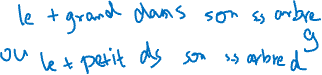 le + grand dans son ss arbre g
ou le + petit ds son ss arbre d